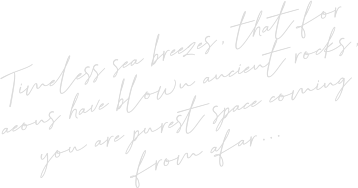 Timeless sea breezes, that for
aeons have blown ancient rocks,
you are purest space coming
from afar...